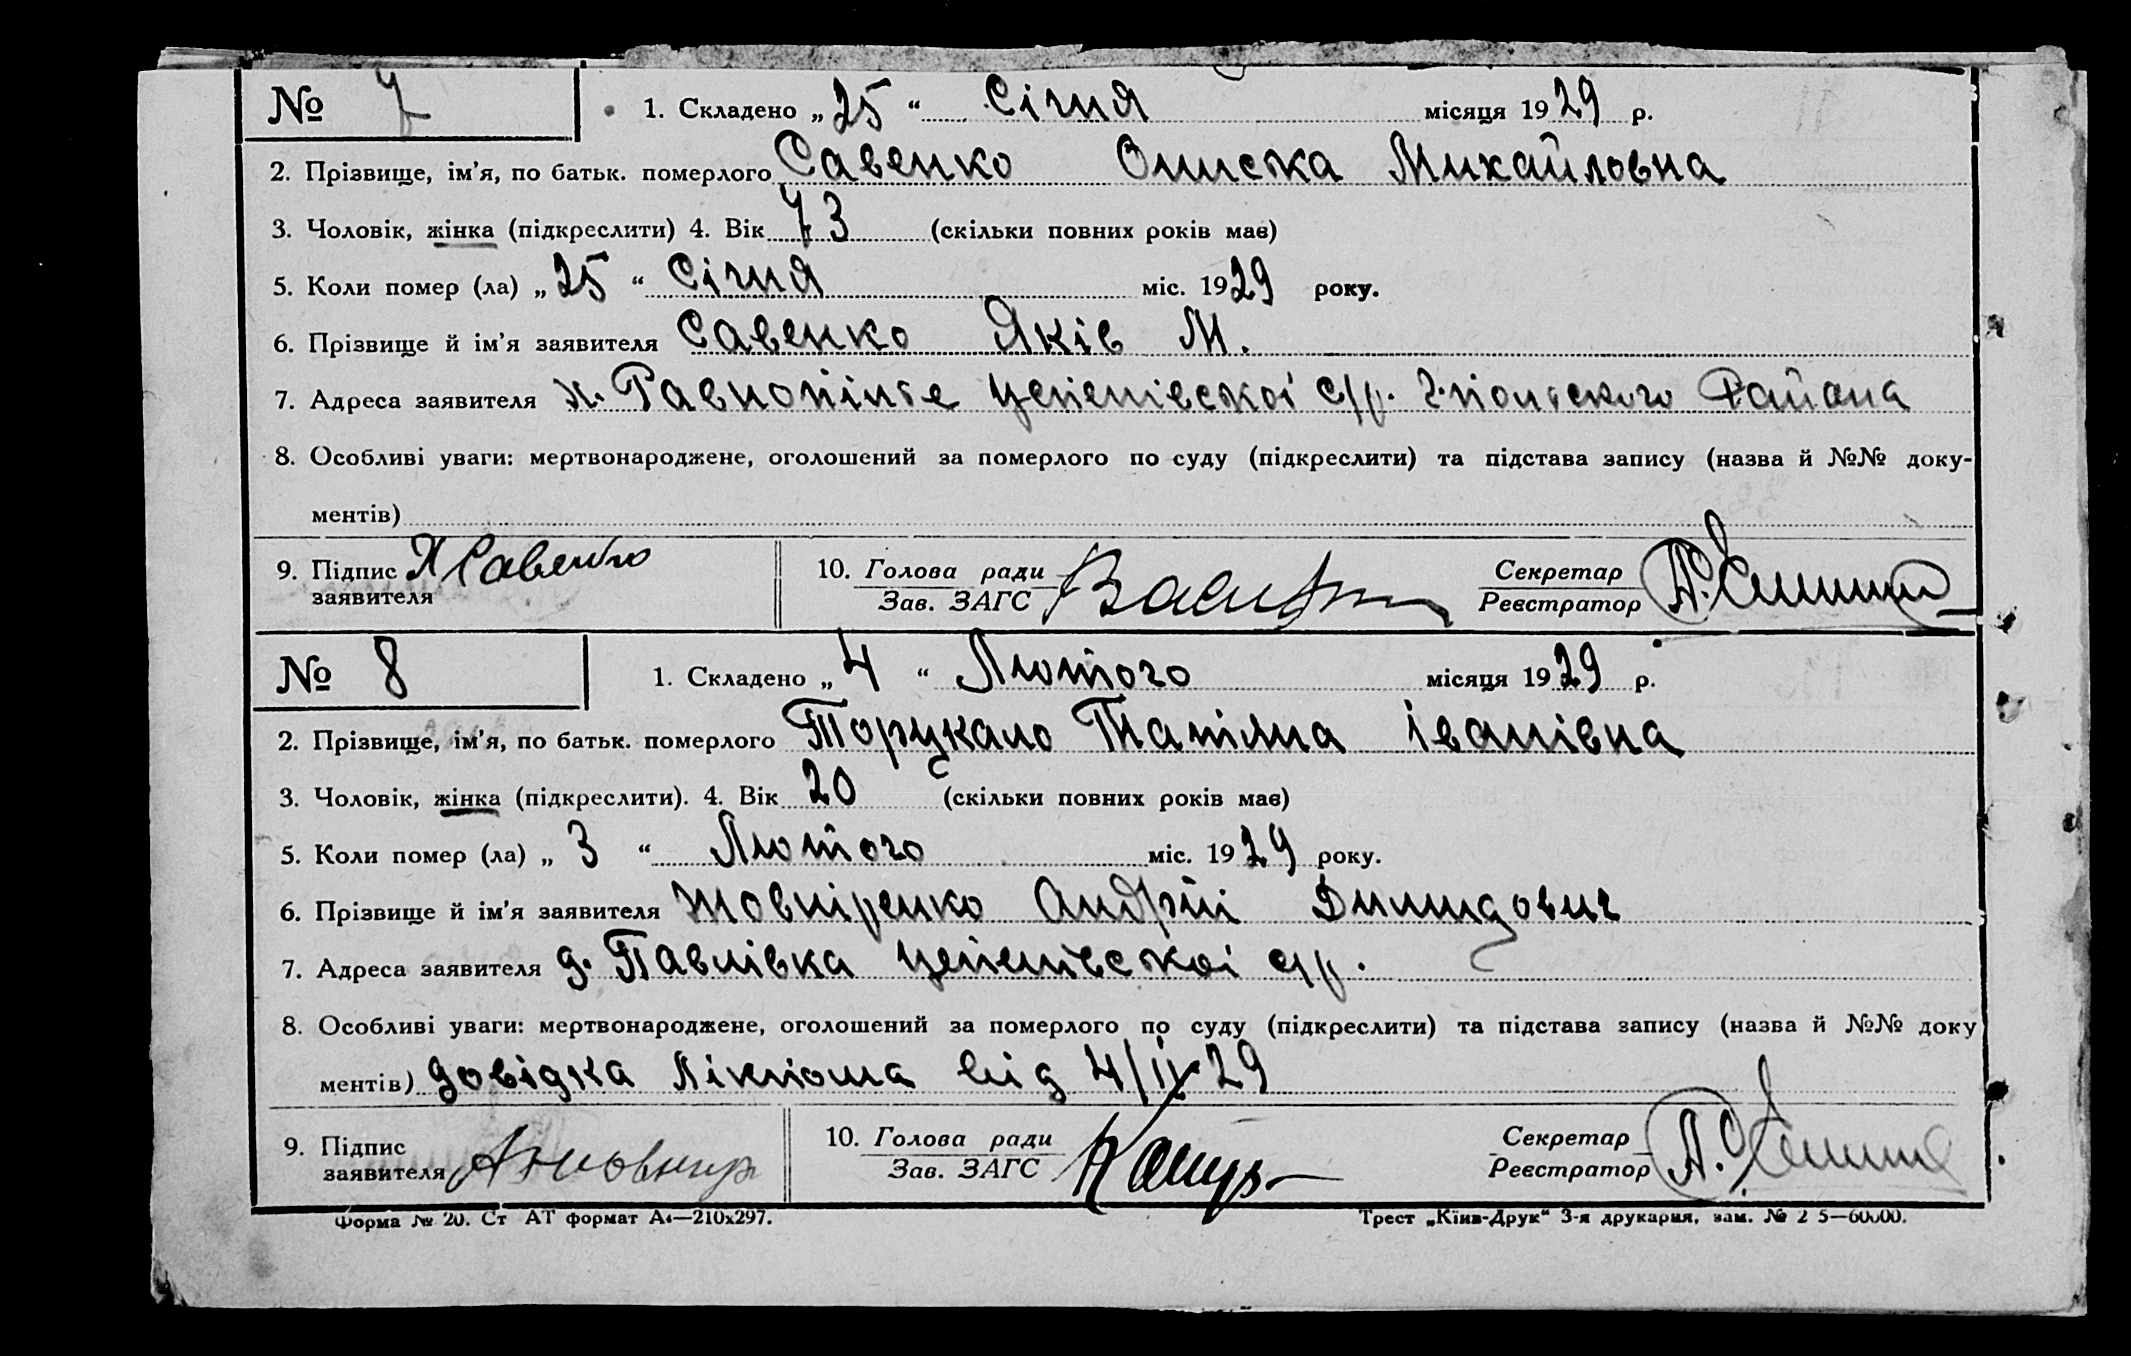 № 7 1. Складено „25“ Січня місяця 1929 р.
2. Прізвище, ім'я, по батьк. померлого Савенко Михайловна
3. Чоловік, жінка (підкреслити) 4. Вік 73 (скільки повних років має)
5. Коли помер (ла) „25“ Січня міс. 1929 року.
6. Прізвище й ім'я заявителя Савенко Яків М.
7. Адреса заявителя х. с/р. Района
8. Особливі уваги: мертвонароджене, оголошений за померлого по суду (підкреслити) та підстава запису (назва й №№ доку-
ментів)
9. Підпис Я Савенко 10. Голова ради Секретар
заявителя Зав. ЗАГС Реєстратор
№ 8 1. Складено „4“ Лютого місяця 1929 р.
2. Прізвище, ім'я, по батьк. померлого Іванівна
3. Чоловік, жінка (підкреслити). 4. Вік 20 (скільки повних років має)
5. Коли помер (ла) „3“ Лютого міс. 1929 року.
6. Прізвище й ім'я заявителя Жовніренко Андрій
7. Адреса заявителя д. Павлівка с/р.
8. Особливі уваги: мертвонароджене, оголошений за померлого по суду (підкреслити) та підстава запису (назва й №№ доку
ментів) довідка від 4/II 29
9. Підпис 10. Голова ради Секретар
заявителя Зав. ЗАГС Реєстратор
Форма № 20. Ст АТ формат А4—210х297. Трест „Київ-Друк“ 3-я друкарня, зам. №